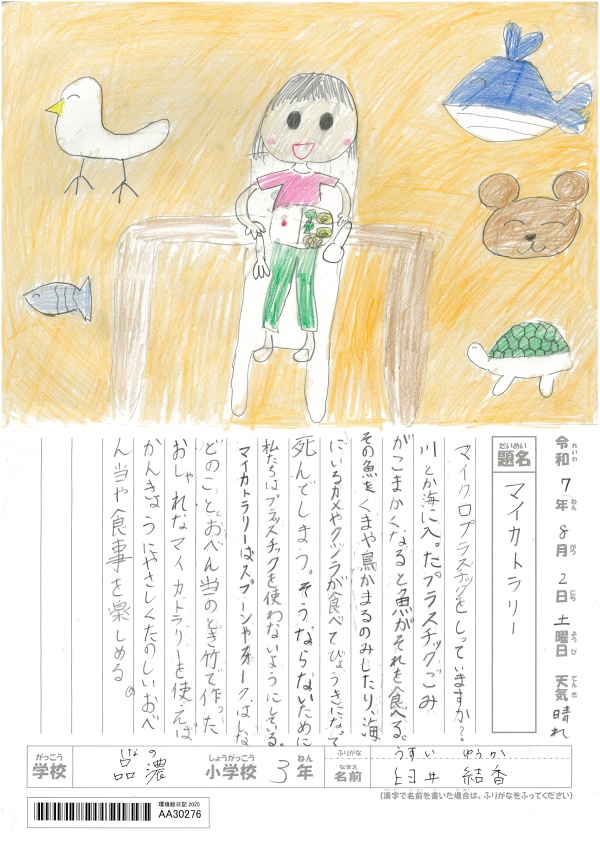 令和7年8月2日土曜日 天気 晴れ
れいわ ねん がつ にち ようび てんき
だいめい
題名 マイカトラリー
マイクロプラスチックをしっていますか?
川とか海に入ったプラスチックごみ
がこまかくなると魚がそれを食べる。
その魚をくまや鳥がまるのみしたり、海
にいるカメやクジラが食べてびょうきになって
死んでしまう。そうならないために
私たちはプラスチックを使わないようにしている。
マイカトラリーはスプーンやフォーク、はしな
どのこと。おべん当のとき竹で作った
おしゃれなマイカトラリーを使えば
かんきょうにやさしくたのしいおべ
ん当や食事を楽しめる。
がっこう
学校
しなの
品濃
しょうがっこう
小学校
3年
ねん
ふりがな うすい ゆうか
なまえ
名前 臼井 結香
(漢字で名前を書いた場合は、ふりがなをふってください)
環境絵日記2025
AA30276